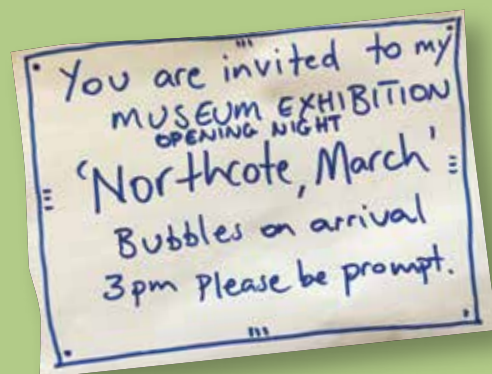 You are invited to my
MUSEUM EXHIBITION
OPENING NIGHT
'Northcote, March'
Bubbles on arrival
3pm Please be prompt.